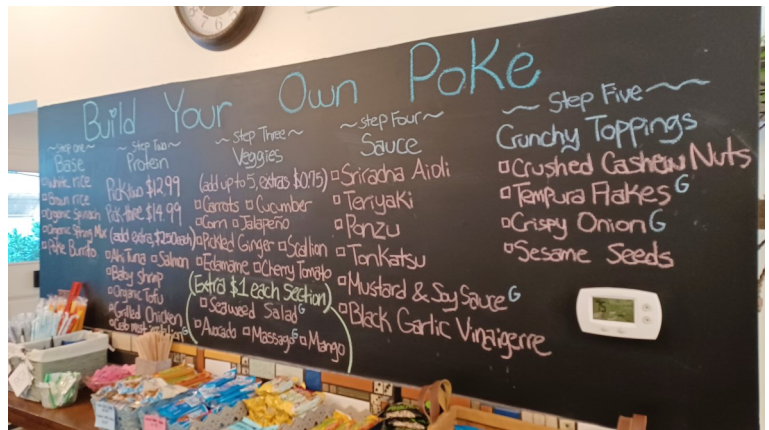 Build Your Own Poke
~Step one~
Base
□ White rice
□ Brown rice
□ Organic Spinach
□ Organic Spring Mix
□ Poke Burrito
~Step Two~
Protein
Pick two $12.99
Pick three $14.99
(add extra, $2.50 each)
□ Ahi Tuna □ Salmon
□ Baby shrimp
□ Organic Tofu
□ Grilled Chicken
□ Crab meat imitation G
~Step Three~
Veggies
(add up to 5, extras $0.75)
□ Carrots □ Cucumber
□ Corn □ Jalapeño
□ Pickled Ginger □ Scallion
□ Edamame □ Cherry Tomato
(Extra $1 each Section)
□ Seaweed Salad G
□ Avocado □ Massago G □ Mango
~Step Four~
Sauce
□ Sriracha Aioli
□ Teriyaki
□ Ponzu
□ Tonkatsu
□ Mustard & Soy Sauce G
□ Black Garlic Vinaigerre
~Step Five~
Crunchy Toppings
□ Crushed Cashew Nuts
□ Tempura Flakes G
□ Crispy Onion G
□ Sesame Seeds